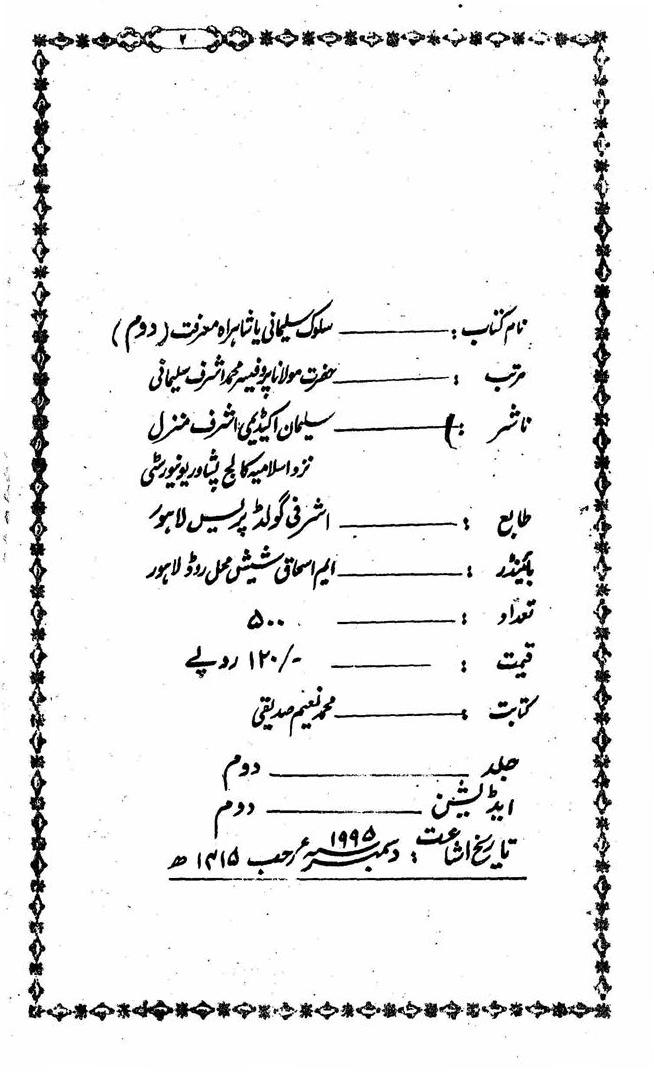 ۲
نام کتاب : ــــــ سلوک سلیمانی یا شاہراہ معرفت ( دوم )
مرتب : ــــــ حضرت مولانا پروفیسر محمد اشرف سلیمانی
ناشر : ــــــ سلیمان اکیڈیمی اشرف منزل
نزد اسلامیہ کالج پشاور یونیورسٹی
طابع : ــــــ اشرفی گولڈ پریس لاہور
بائینڈر : ــــــ ایم اسحاق شیش محل روڈ لاہور
تعداد : ــــــ ۵۰۰
قیمت : ــــــ ۱۲۰/- روپے
کتابت : ــــــ محمد نعیم صدیقی
جلد ــــــ دوم
ایڈیشن ــــــ دوم
تاریخ اشاعت : دسمبر ۱۹۹۵ء رجب ۱۴۱۵ ھ